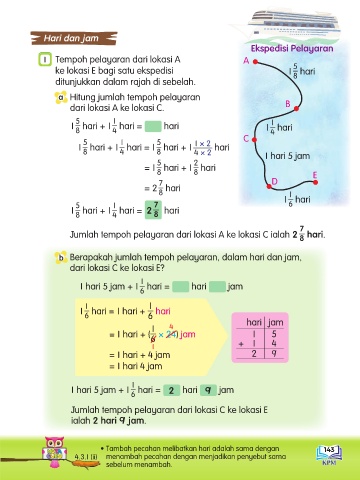 Hari dan jam
Ekspedisi Pelayaran
1 Tempoh pelayaran dari lokasi A
ke lokasi E bagi satu ekspedisi
ditunjukkan dalam rajah di sebelah.
A
1 5/8 hari
B
1 1/4 hari
C
1 hari 5 jam
D
E
1 1/6 hari
a Hitung jumlah tempoh pelayaran
dari lokasi A ke lokasi C.
1 5/8 hari + 1 1/4 hari = hari
1 5/8 hari + 1 1/4 hari = 1 5/8 hari + 1 1 × 2/4 × 2 hari
= 1 5/8 hari + 1 2/8 hari
= 2 7/8 hari
1 5/8 hari + 1 1/4 hari = 2 7/8 hari
Jumlah tempoh pelayaran dari lokasi A ke lokasi C ialah 2 7/8 hari.
b Berapakah jumlah tempoh pelayaran, dalam hari dan jam,
dari lokasi C ke lokasi E?
1 hari 5 jam + 1 1/6 hari = hari jam
1 1/6 hari = 1 hari + 1/6 hari
4
= 1 hari + (1/6 × 24) jam
1
= 1 hari + 4 jam
= 1 hari 4 jam
hari jam
1 5
+ 1 4
2 9
1 hari 5 jam + 1 1/6 hari = 2 hari 9 jam
Jumlah tempoh pelayaran dari lokasi C ke lokasi E
ialah 2 hari 9 jam.
4.3.1 (ii)
• Tambah pecahan melibatkan hari adalah sama dengan
menambah pecahan dengan menjadikan penyebut sama
sebelum menambah.
143
KPM